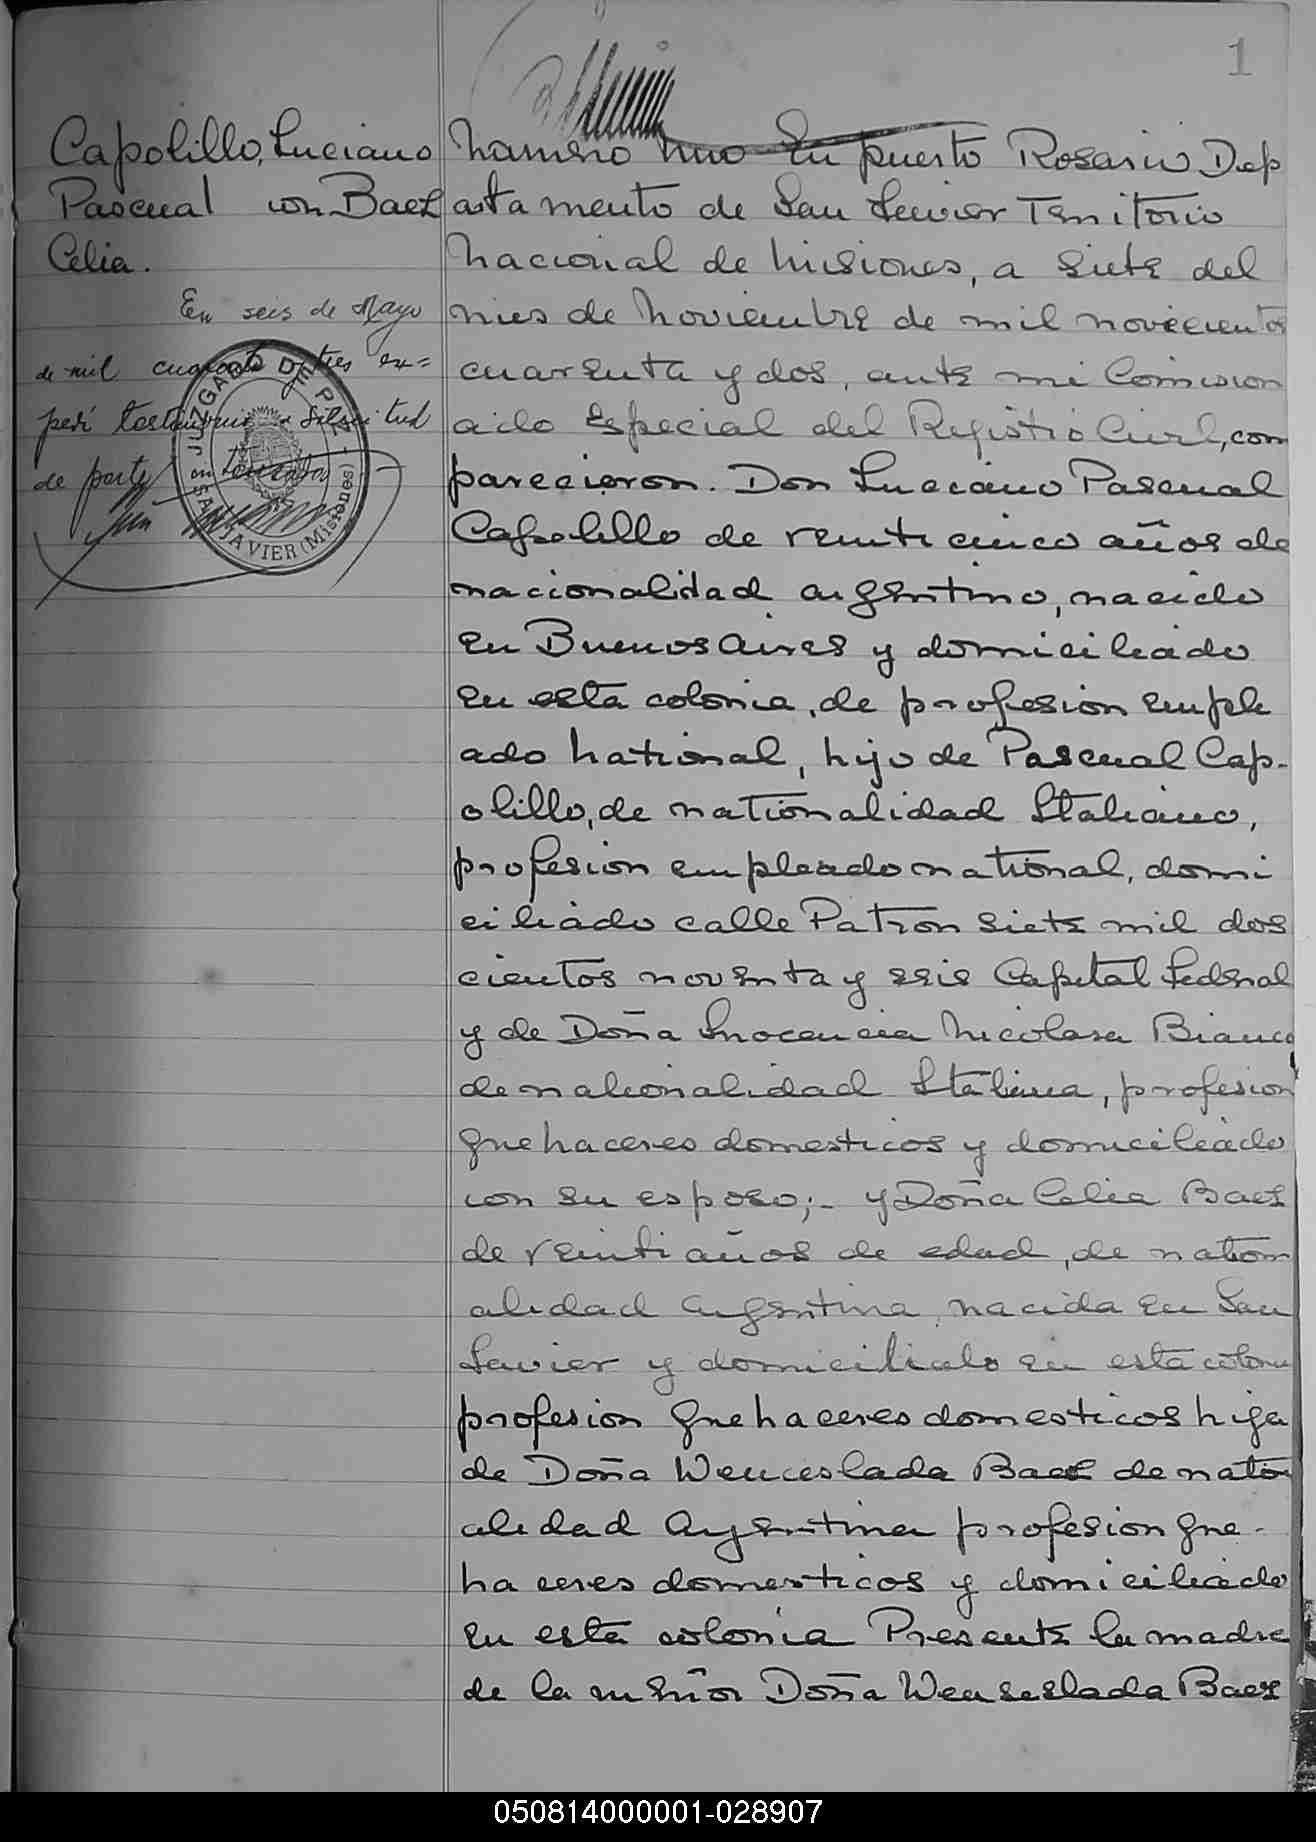 1
Capolillo, Luciano
Pascual con Baez
Celia.
En seis de Mayo
de mil cuarenta y tres ex=
pedí testimonio a solicitud
de parte
JUZGADO DE PAZ
SAN JAVIER (Misiones)
Número uno En puerto Rosario Dep
artamento de San Javier Territorio
Nacional de Misiones, a siete del
mes de Noviembre de mil novecientos
cuarenta y dos, ante mi Comision
ado Especial del Registro Civil, com
parecieron. Don Luciano Pascual
Capolillo de veinticinco años de
nacionalidad argentino, nacido
en Buenos Aires y domiciliado
en esta colonia, de profesion emple
ado national, hijo de Pascual Cap-
olillo, de nationalidad Italiano,
profesion empleado national, domi
ciliado calle Patron siete mil dos
cientos noventa y seis Capital Federal
y de Doña Inocencia Nicolasa Bianco
de nationalidad Italiana, profesion
quehaceres domesticos y domiciliado
con su esposo;- y Doña Celia Baez
de veinti años de edad, de nation
alidad Argentina, nacida en San
Javier y domiciliado en esta colonia
profesion quehaceres domesticos hija
de Doña Wenceslada Baez de nation
alidad Argentina profesion que-
haceres domesticos y domiciliado
en esta colonia Presente la madre
de la menor Doña Wenseslada Baez
050814000001-028907